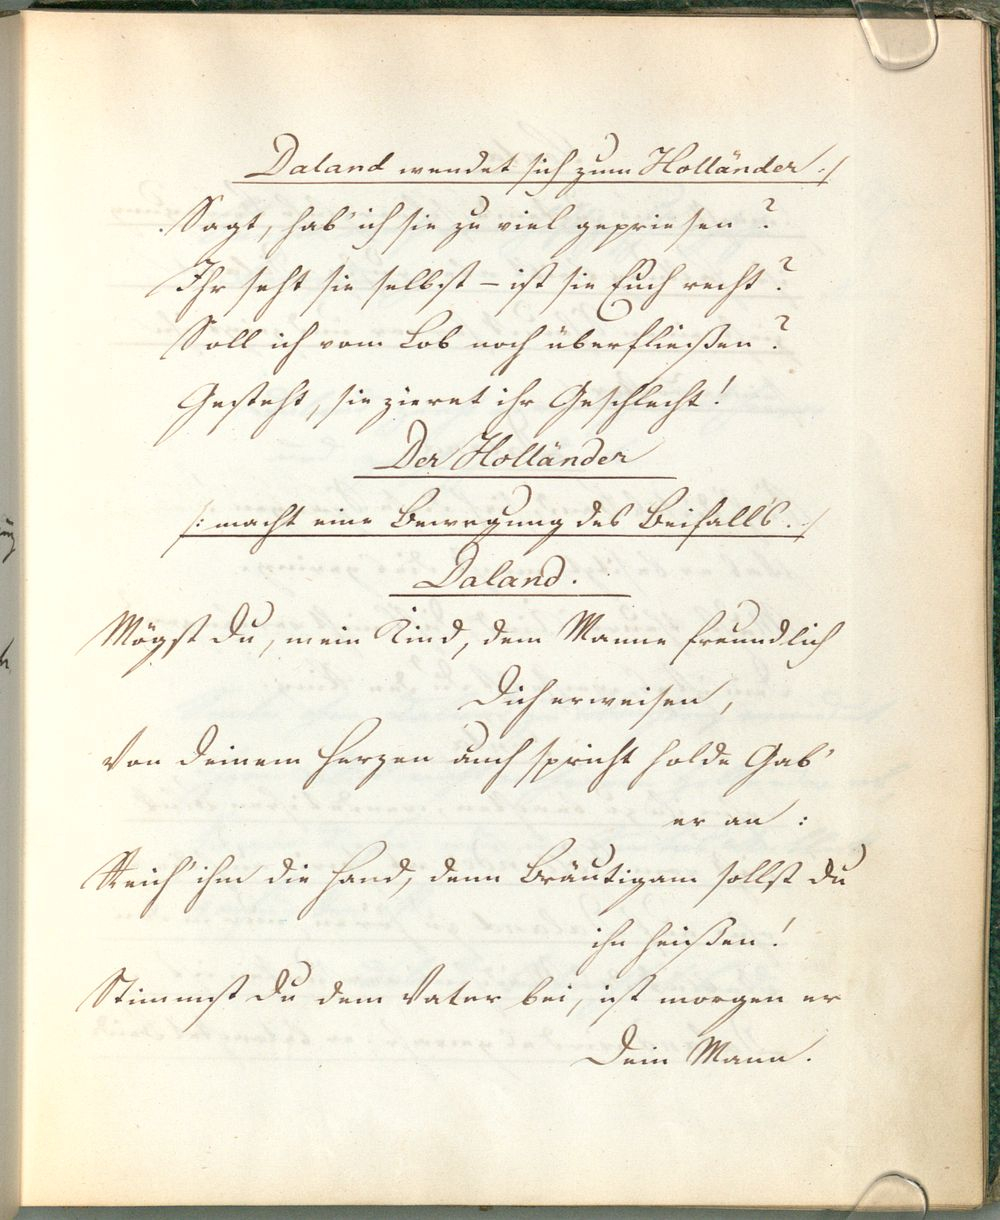 Daland wendet sich zum Holländer. :/
Sagt, hab' ich sie zu viel gepriesen?
Ihr seht sie selbst – ist sie Euch recht?
Soll ich vom Lob noch überfließen?
Gesteht, sie zieret ihr Geschlecht!
Der Holländer
/: macht eine Bewegung des Beifalls. :/
Daland.
Mögst Du, mein Kind, dem Manne freundlich
Dich erweisen,
Von Deinem Herzen auch spricht holde Gab'
er an:
Reich' ihm die Hand, denn Bräutigam sollst Du
ihn heißen!
Stimmst Du dem Vater bei, ist morgen er
Dein Mann.